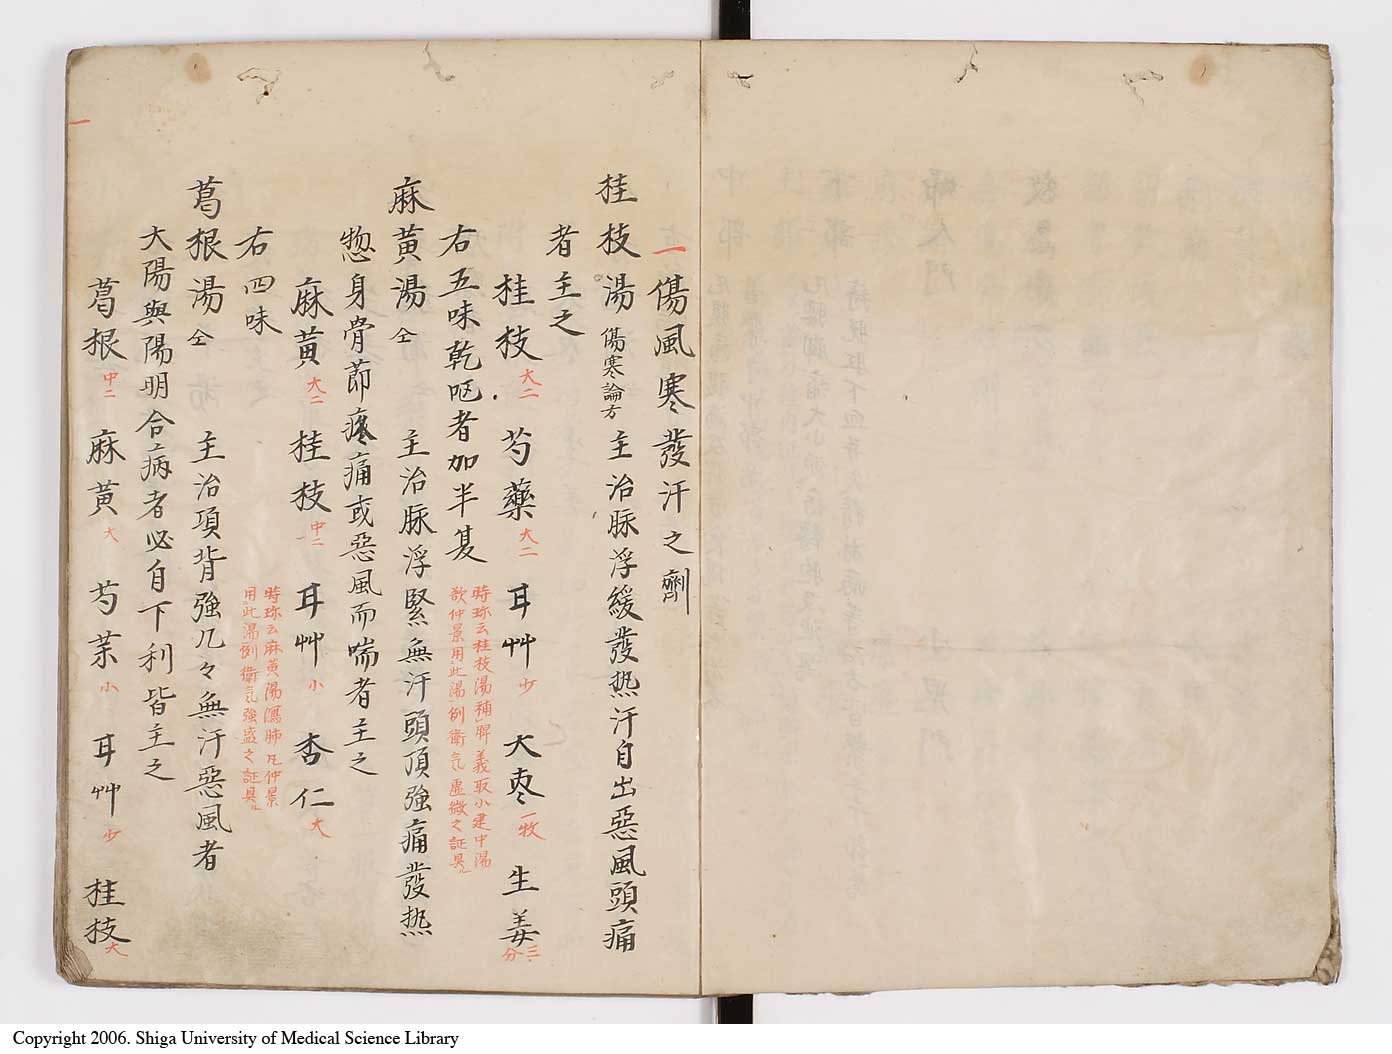 一傷風寒發汗之劑
桂枝湯 傷寒論方 主治脈浮緩發热汗自出惡風頭痛
者主之
桂枝 大二 芍藥 大二 耳艸 少 大枣 一牧 生姜 三分
右五味乾呕者加半夏
時珍云桂枝湯補脾義取小建中湯
歆仲景用此湯例衛気虚微之証具
麻黄湯 仝 主治脈浮緊無汗頭頂強痛發热
惣身骨莭疼痛或惡風而喘者主之
麻黄 大二 桂枝 中二 耳艸 小 杏仁 大
右四味
時珍云麻黄湯瀉肺凡仲景
用此湯例衛気強盛之証具
葛根湯 仝 主治項背強几々無汗惡風者
大陽與陽明合病者必自下利皆主之
葛根 中二 麻黄 大 芍茱 小 耳艸 少 桂枝 大
Copyright 2006. Shiga University of Medical Science Library